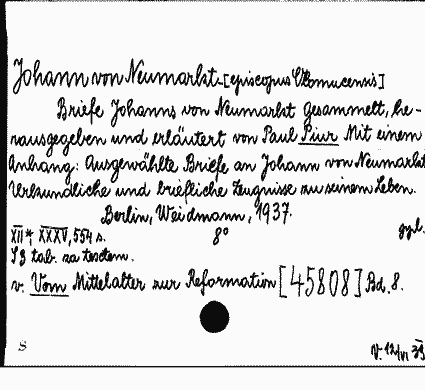 Johann von Neumarkt-[episcopus Olomucensis]
Briefe Johanns von Neumarkt Gesammelt, he-
rausgegeben und erläutert von Paul Piur Mit einem
Anhang: Ausgewählte Briefe an Johann von Neumarkt
Urkundliche und briefliche Zeugnisse zu seinem Leben.
Berlin, Weidmann, 1937.
XII*, XXXV, 554 s. 8°
13 tab. za textem.
v. Vom Mittelalter zur Reformation [45808] Bd. 8.
S V. 12/VI 39